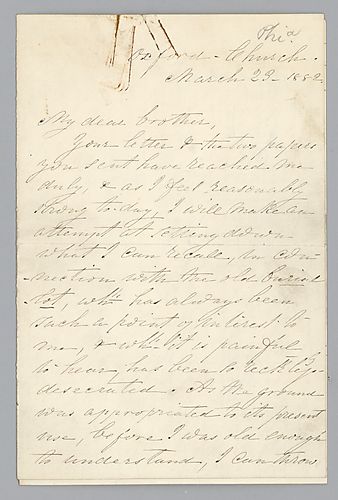 Phia
Oxford - Church.
March 29 - 1882
My dear brother,
Your letter & the two papers
you sent have reached me
duly, & as I feel reasonably
strong to-day, I will make an
attempt at setting down
what I can recall, in con-
nection with the old burial
lot, whh has always been
such a point of interest to
me, & whh it is painful
to hear has been so
desecrated. As the ground
was appropriated to its present
use, before I was old enough
to understand, I can throw